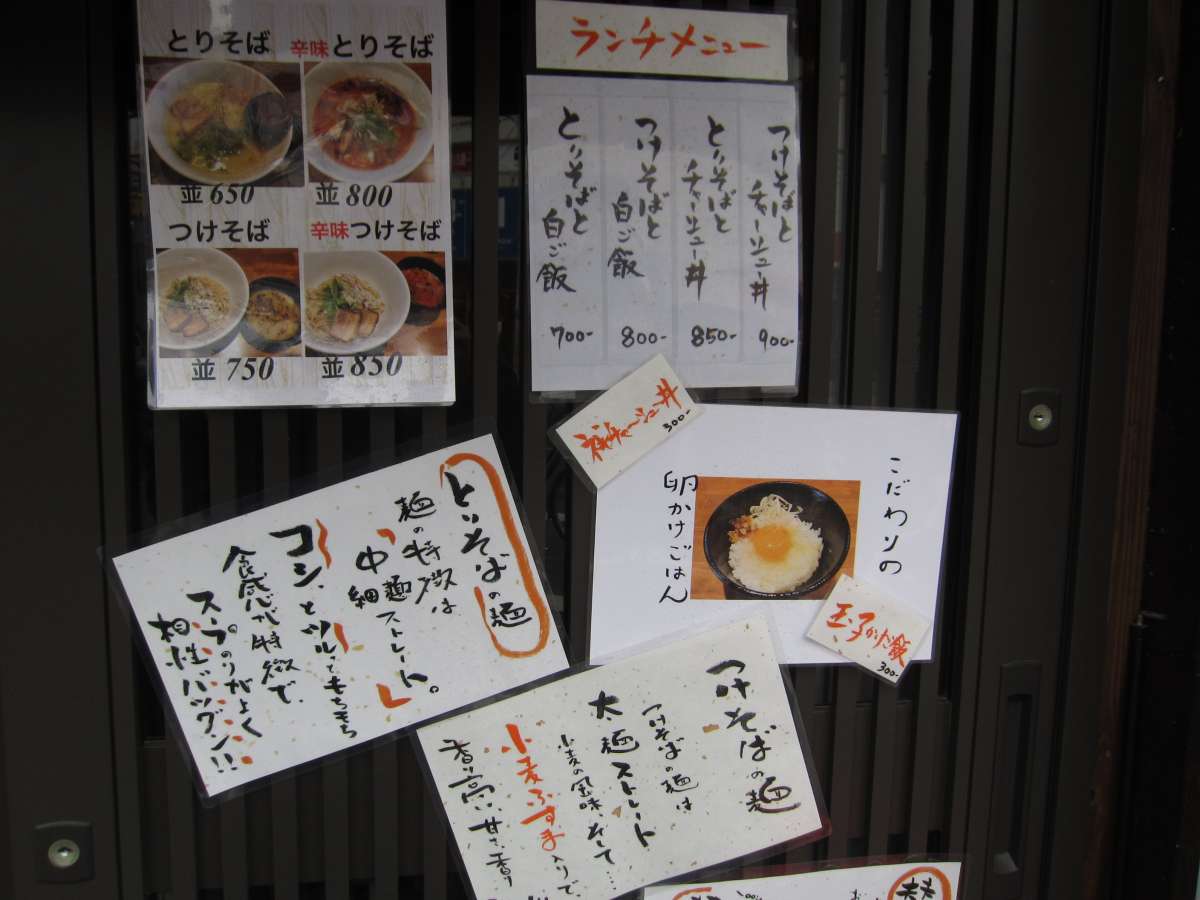 とりそば
辛味とりそば
並650
並800
つけそば
辛味つけそば
並750
並850
ランチメニュー
つけそばと
チャーシュー丼
900-
とりそばと
チャーシュー丼
850-
つけそばと
白ご飯
800-
とりそばと
白ご飯
700-
チャーシュー丼
300-
こだわりの
卵かけごはん
玉子かけご飯
300-
とりそばの麺
麺の特徴は
「中細麺ストレート」。
コシ、とツルっともちもち
食感が特徴で、
スープのりがよく
相性バツグン!!
つけそばの麺
つけそばの麺は
太麺ストレート
小麦の風味、そして…
小麦ふすま入りで、
香り高い甘い香り
替